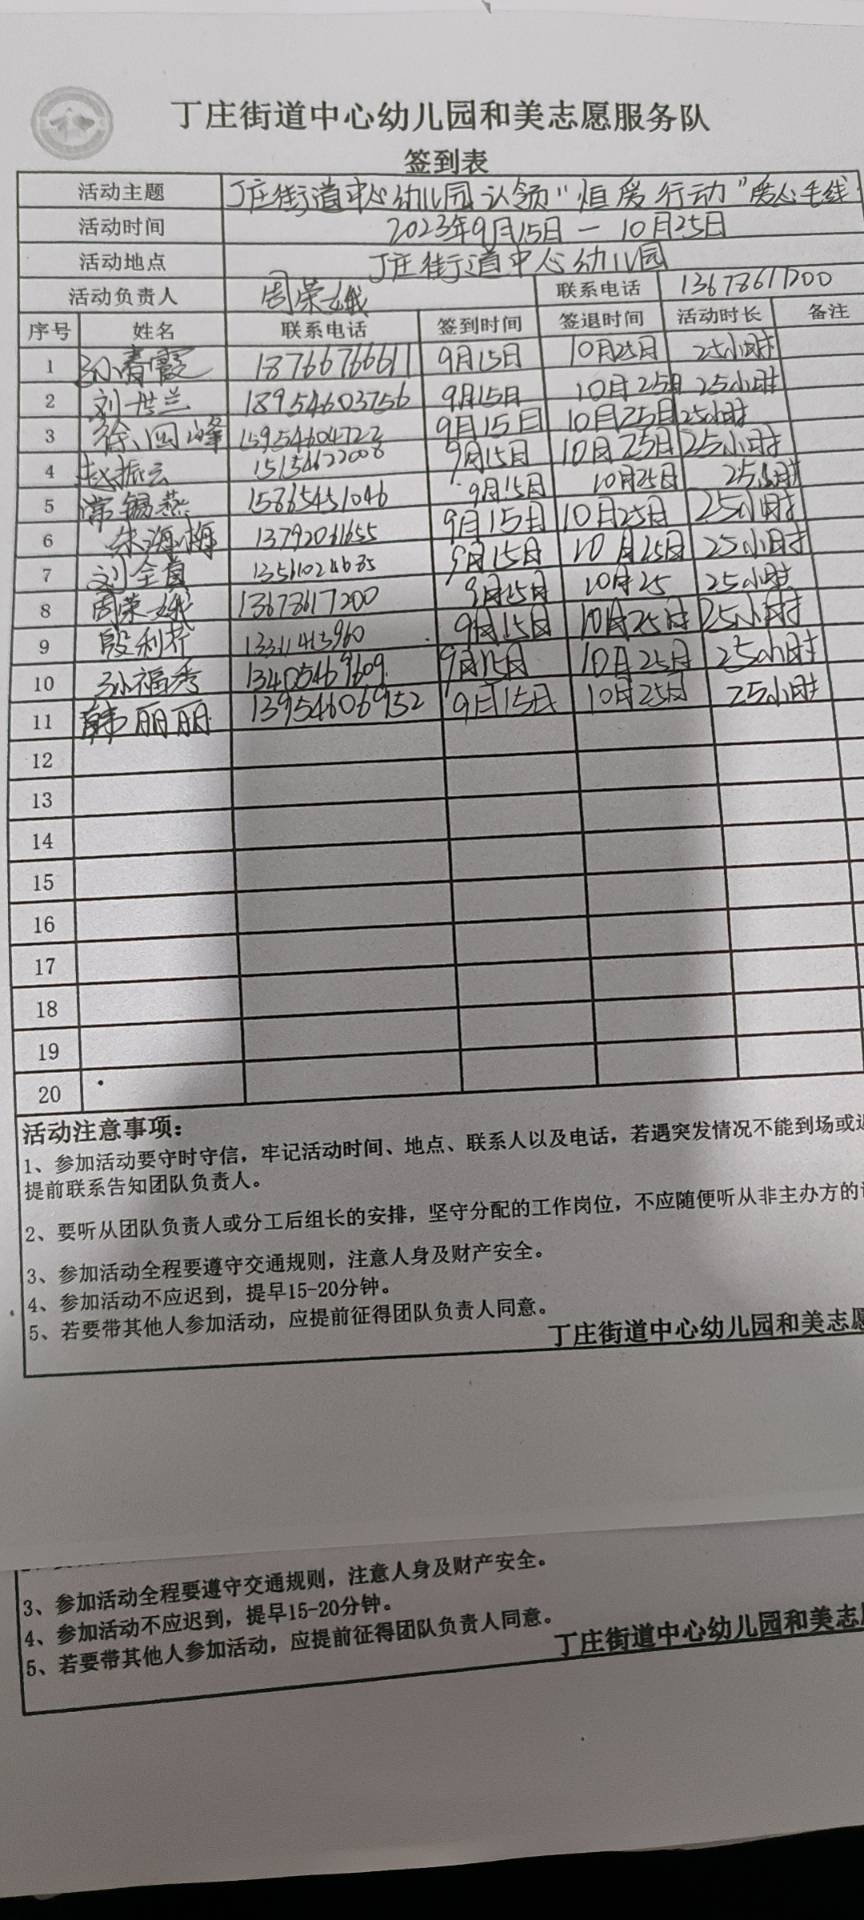 丁庄街道中心幼儿园和美志愿服务队
签到表
活动主题 丁庄街道中心幼儿园认领"恒爱行动"爱心毛线
活动时间 2023年9月15日一10月25日
活动地点 丁庄街道中心幼儿园
活动负责人 周荣娥 联系电话 13678617200
序号 姓名 联系电话 签到时间 签退时间 活动时长 备注
1 孙春霞 18766766611 9月15日 10月25日 25小时
2 刘世兰 18954603756 9月15日 10月25日 25小时
3 徐四峰 15954604723 9月15日 10月25日 25小时
4 赵振云 15154622008 9月15日 10月25日 25小时
5 常锡燕 15865451046 9月15日 10月25日 25小时
6 朱海梅 13792031655 9月15日 10月25日 25小时
7 刘全真 9月15日 10月25日 25小时
8 周荣娥 13678617200 9月15日 10月25 25小时
9 殷利芹 9月15日 10月25日 25小时
10 孙福秀 13405469609 9月15日 10月25日 25小时
11 韩丽丽 13954606952 9月15日 10月25日 25小时
12
13
14
15
16
17
18
19
20
活动注意事项：
1、参加活动要守时守信，牢记活动时间、地点、联系人以及电话，若遇突发情况不能到场或
提前联系告知团队负责人。
2、要听从团队负责人或分工后组长的安排，坚守分配的工作岗位，不应随便听从非主办方的
3、参加活动全程要遵守交通规则，注意人身及财产安全。
4、参加活动不应迟到，提早15-20分钟。
5、若要带其他人参加活动，应提前征得团队负责人同意。
丁庄街道中心幼儿园和美志愿
3、参加活动全程要遵守交通规则，注意人身及财产安全。
4、参加活动不应迟到，提早15-20分钟。
5、若要带其他人参加活动，应提前征得团队负责人同意。
丁庄街道中心幼儿园和美志